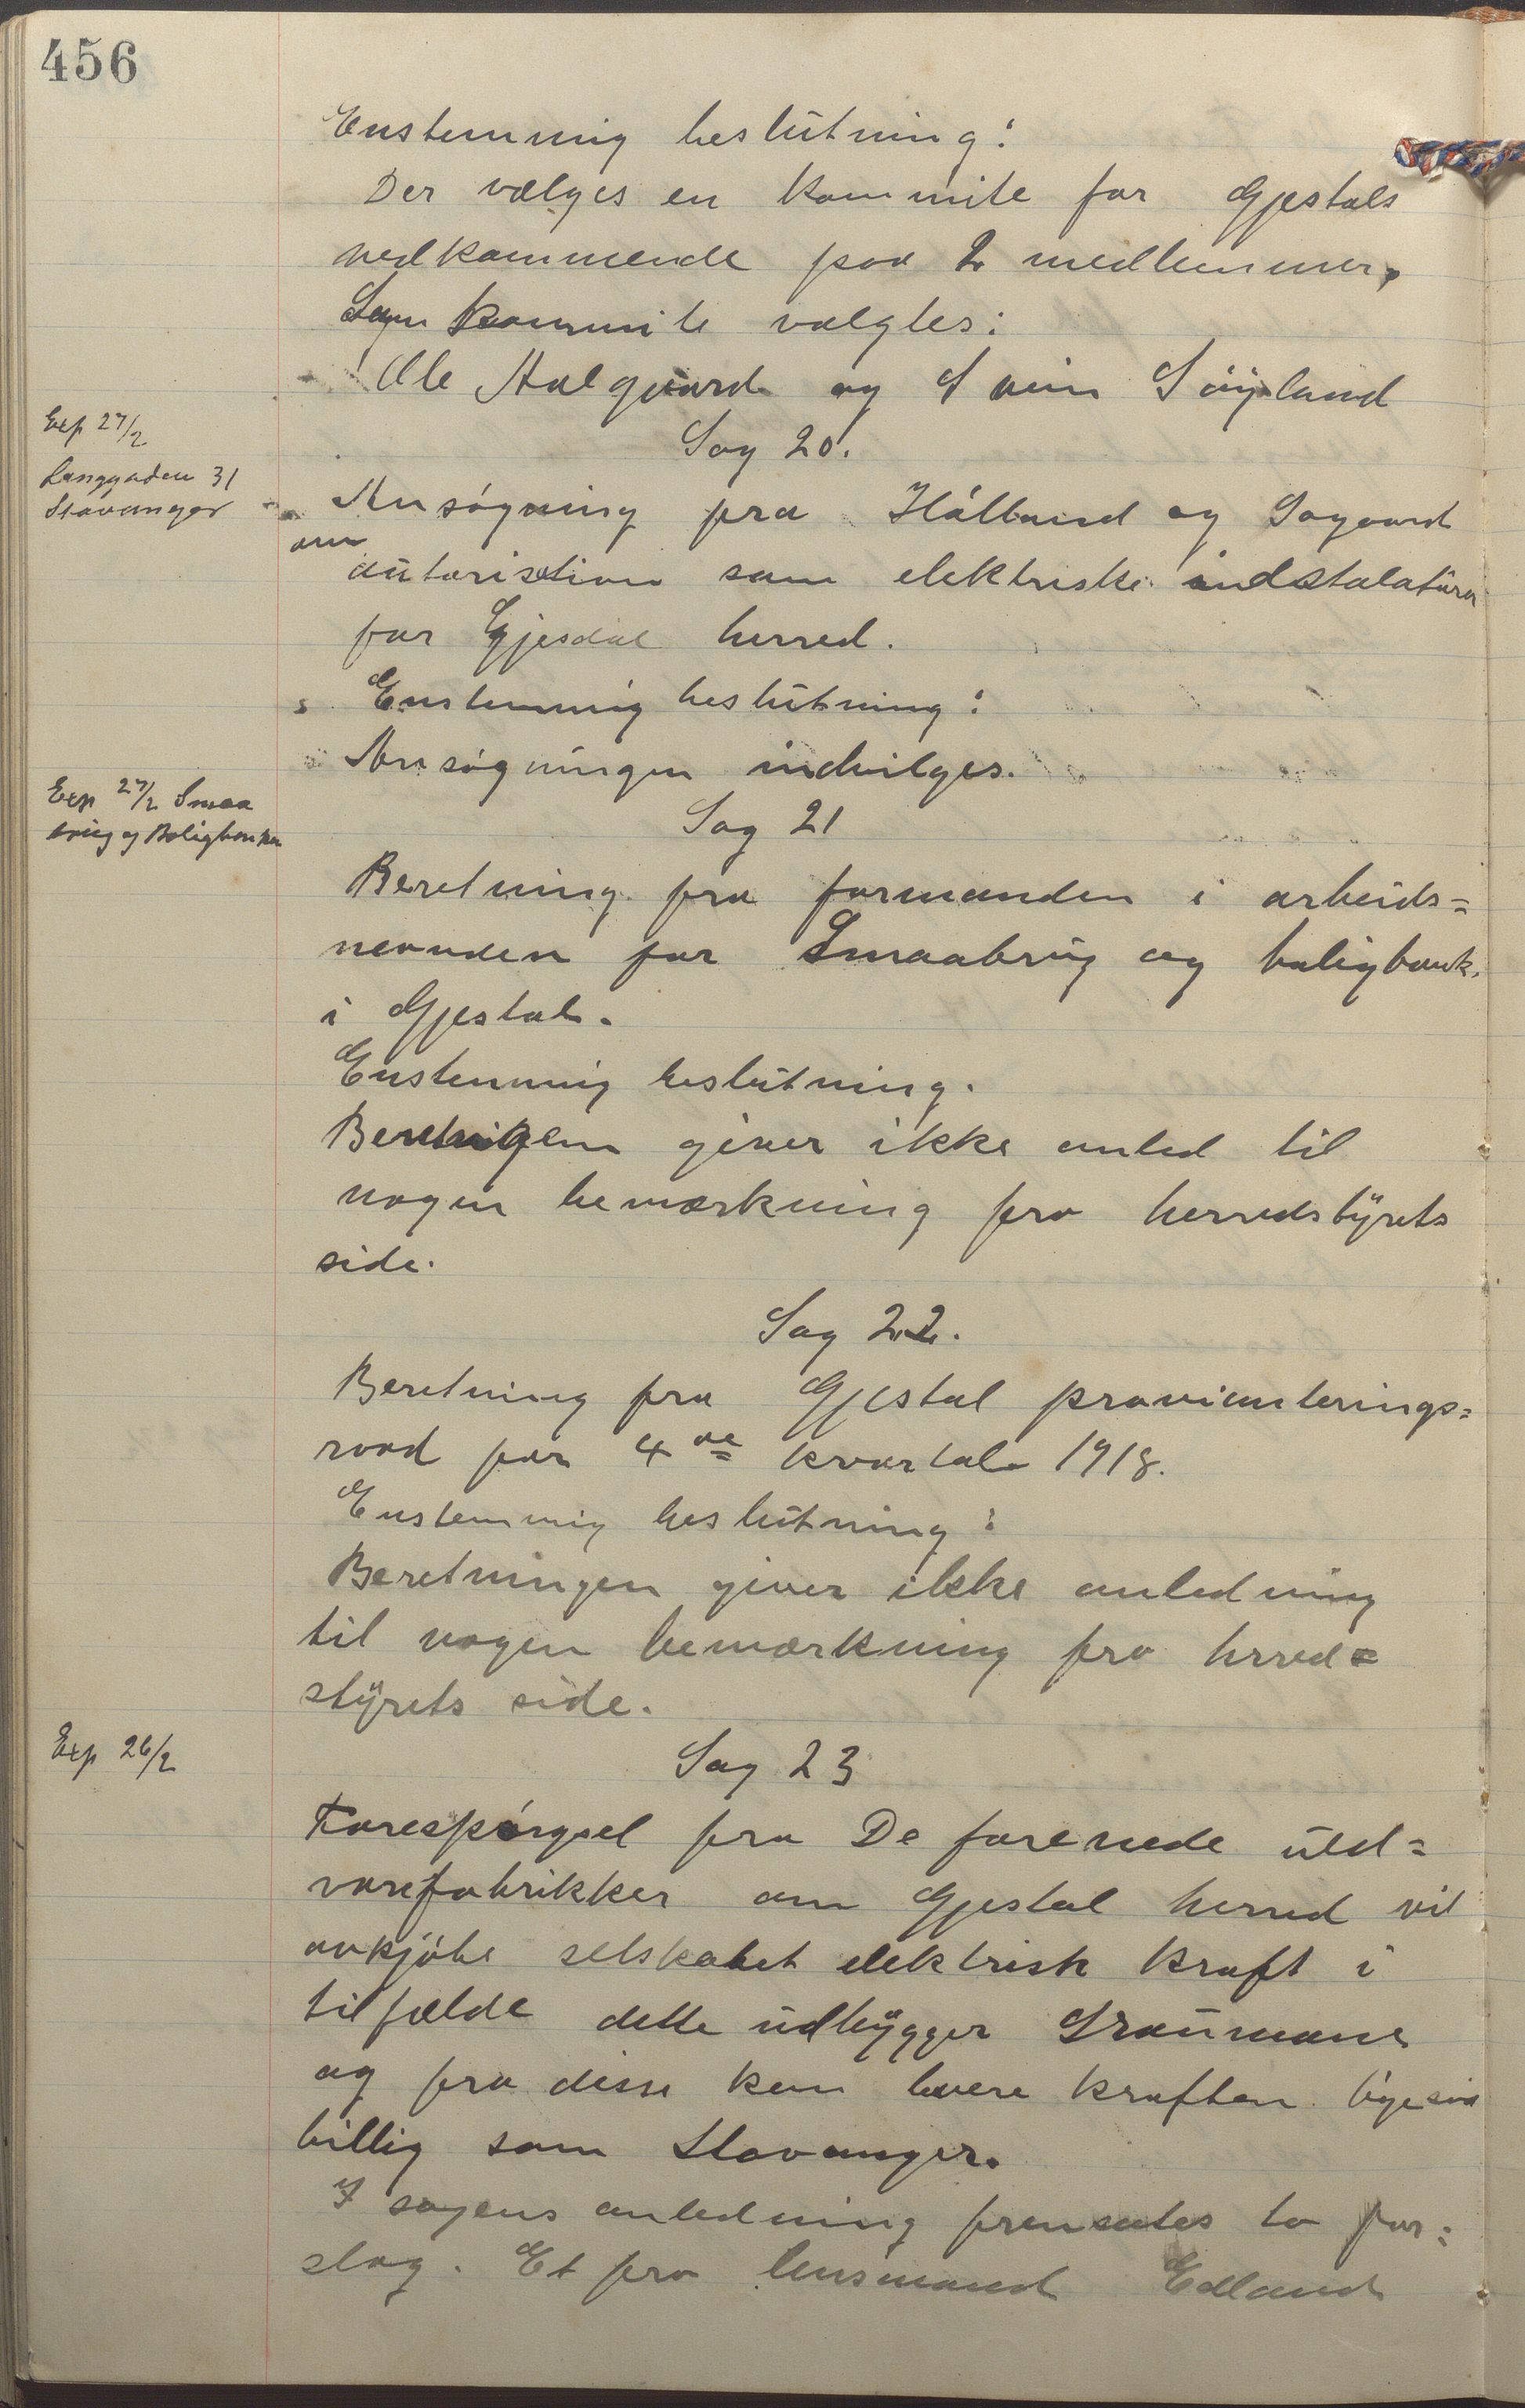 456
Enstemmig beslutning:
Der vælges en kommite for Gjestals
vedkommende paa 2 medlemmer.
Som kommite valgtes:
Ole Aalgaard og Svein Søyland
Exp 27/2
Langgaden 31
Stavanger
Sag 20.
Ansøgning fra Hålland og Sagaard
om
autorisation som elektriske indstalatører
for Gjesdal herred.
Enstemmig beslutning:
Ansøgningen indvilges.
Exp 27/2 Smaa
brug og Boligbanken
Sag 21
Beretning fra formanden i arbeids=
nevnden for Smaabrug og boligbank.
i Gjestal.
Enstemmig beslutning.
Beretnigen giver ikke anled til
nogen bemærkning fra herredstyrets
side.
Sag 22.
Beretning fra Gjestal provianterings=
raad for 4de kvartal 1918.
Enstemmig beslutning:
Beretningen giver ikke anledning
til nogen bemærkning fra herred=
styrets side.
Exp 26/2
Sag 23
Forespørgsel fra De forenede uld=
varefabrikker om Gjestal herred vil
avkjøbe selskabet elektrisk kraft i
tilfælde dette udbygger
og fra disse kan levere kraften ligesaa
billig som Stavanger.
I sagens anledning fremsattes to for=
slag. Et fra lensmand Edland